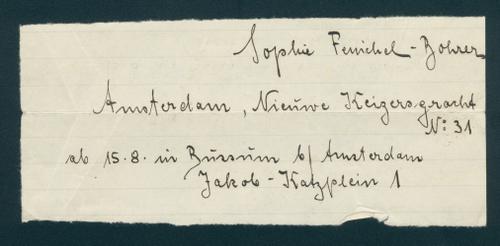 Sophie Fenichel-Bohrer
Amsterdam, Nieuwe Keizersgracht
N: 31
ab 15.8. in Bussum b/ Amsterdam
Jakob-Katzplein 1